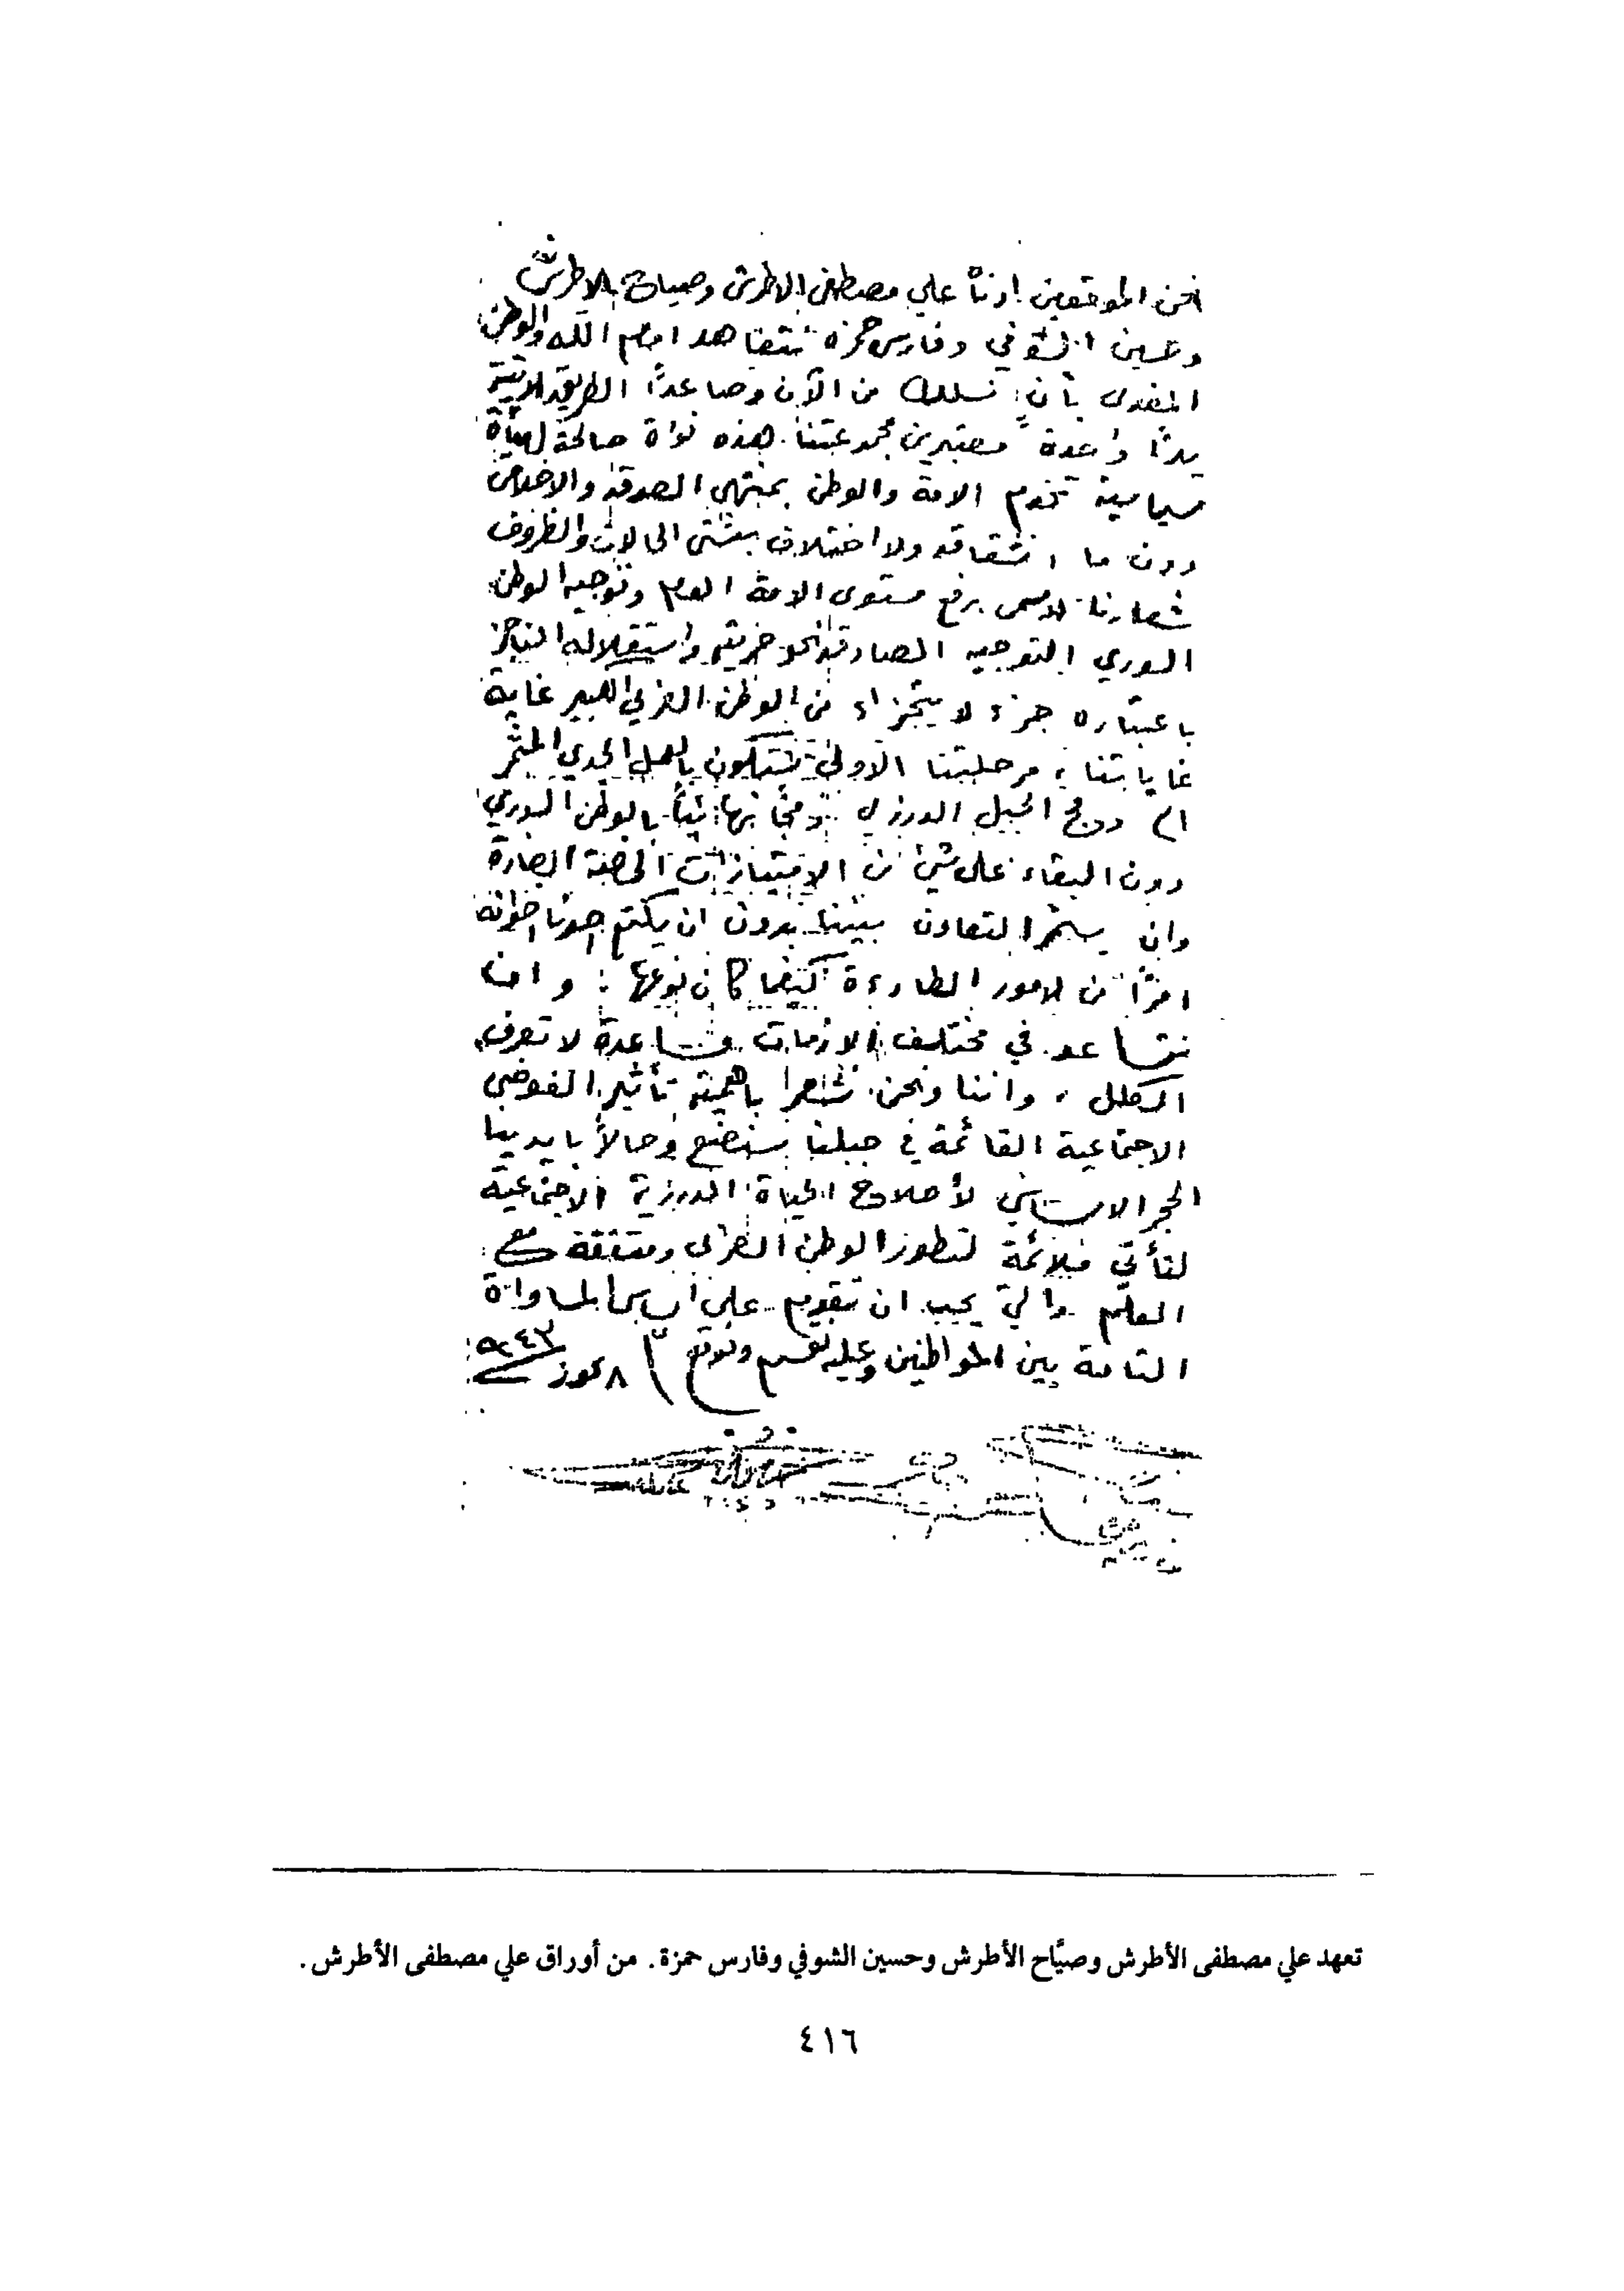 نحن الموقعين ادناه علي مصطفى الاطرش وصياح الاطرش
وحسين الشوفي وفارس حمزه نتعاهد امام الله والوطن
المفدى بأن نسلك من الآن وصاعداً الطريق الاتية
يداً واحدة معتبرين مجموعتنا هذه نواة صالحة لهيأة
سياسية تخدم الامة والوطن بمنتهى الصدق والاخلاص
دون ما انشقاق ولا اختلاف بشتى الحالات والظروف
شعارنا الاسمى رفع مستوى الامة العام وتوجيه الوطن
السوري التوجيه الصادق نحو حريته واستقلاله الناجز
باعتباره جزء لا يتجزاء من الوطن العربي الكبير غاية
غاياتنا ؛ مرحلتنا الاولى ستكون بالعمل الجدي المثمر
دمج الجبل الدرزي نهائياً بالوطن السوري
دون البقاء على شيء من الامتيازات الضارة
وان يستمر التعاون بيننا بدون ان يكتم احدنا اخوانه
امراً من الامور الطارءة كيفما كان نوعها ؛ وان
نتساعد في مختلف الازمات مساعدة لا تعرف
الكلل ، واننا ونحن نشعر باهمية تأثير الفوضى
الاجتماعية القائمة في جبلنا سنضع وحالاً بايدينا
الحجر الاساسي لأصلاح الحياة الدرزية الاجتماعية
لتأتي ملائمة لتطور الوطن العربي ومتفقة مع
العلم والتي يجب ان تقوم على اساس المساواة
التامة بين المواطنين وعليه نقسم ونوقع ٨ تموز ٩٤٣
تعهد علي مصطفى الأطرش وصيَّاح الأطرش وحسين الشوفي وفارس حمزة. من أوراق علي مصطفى الأطرش.
٤١٦